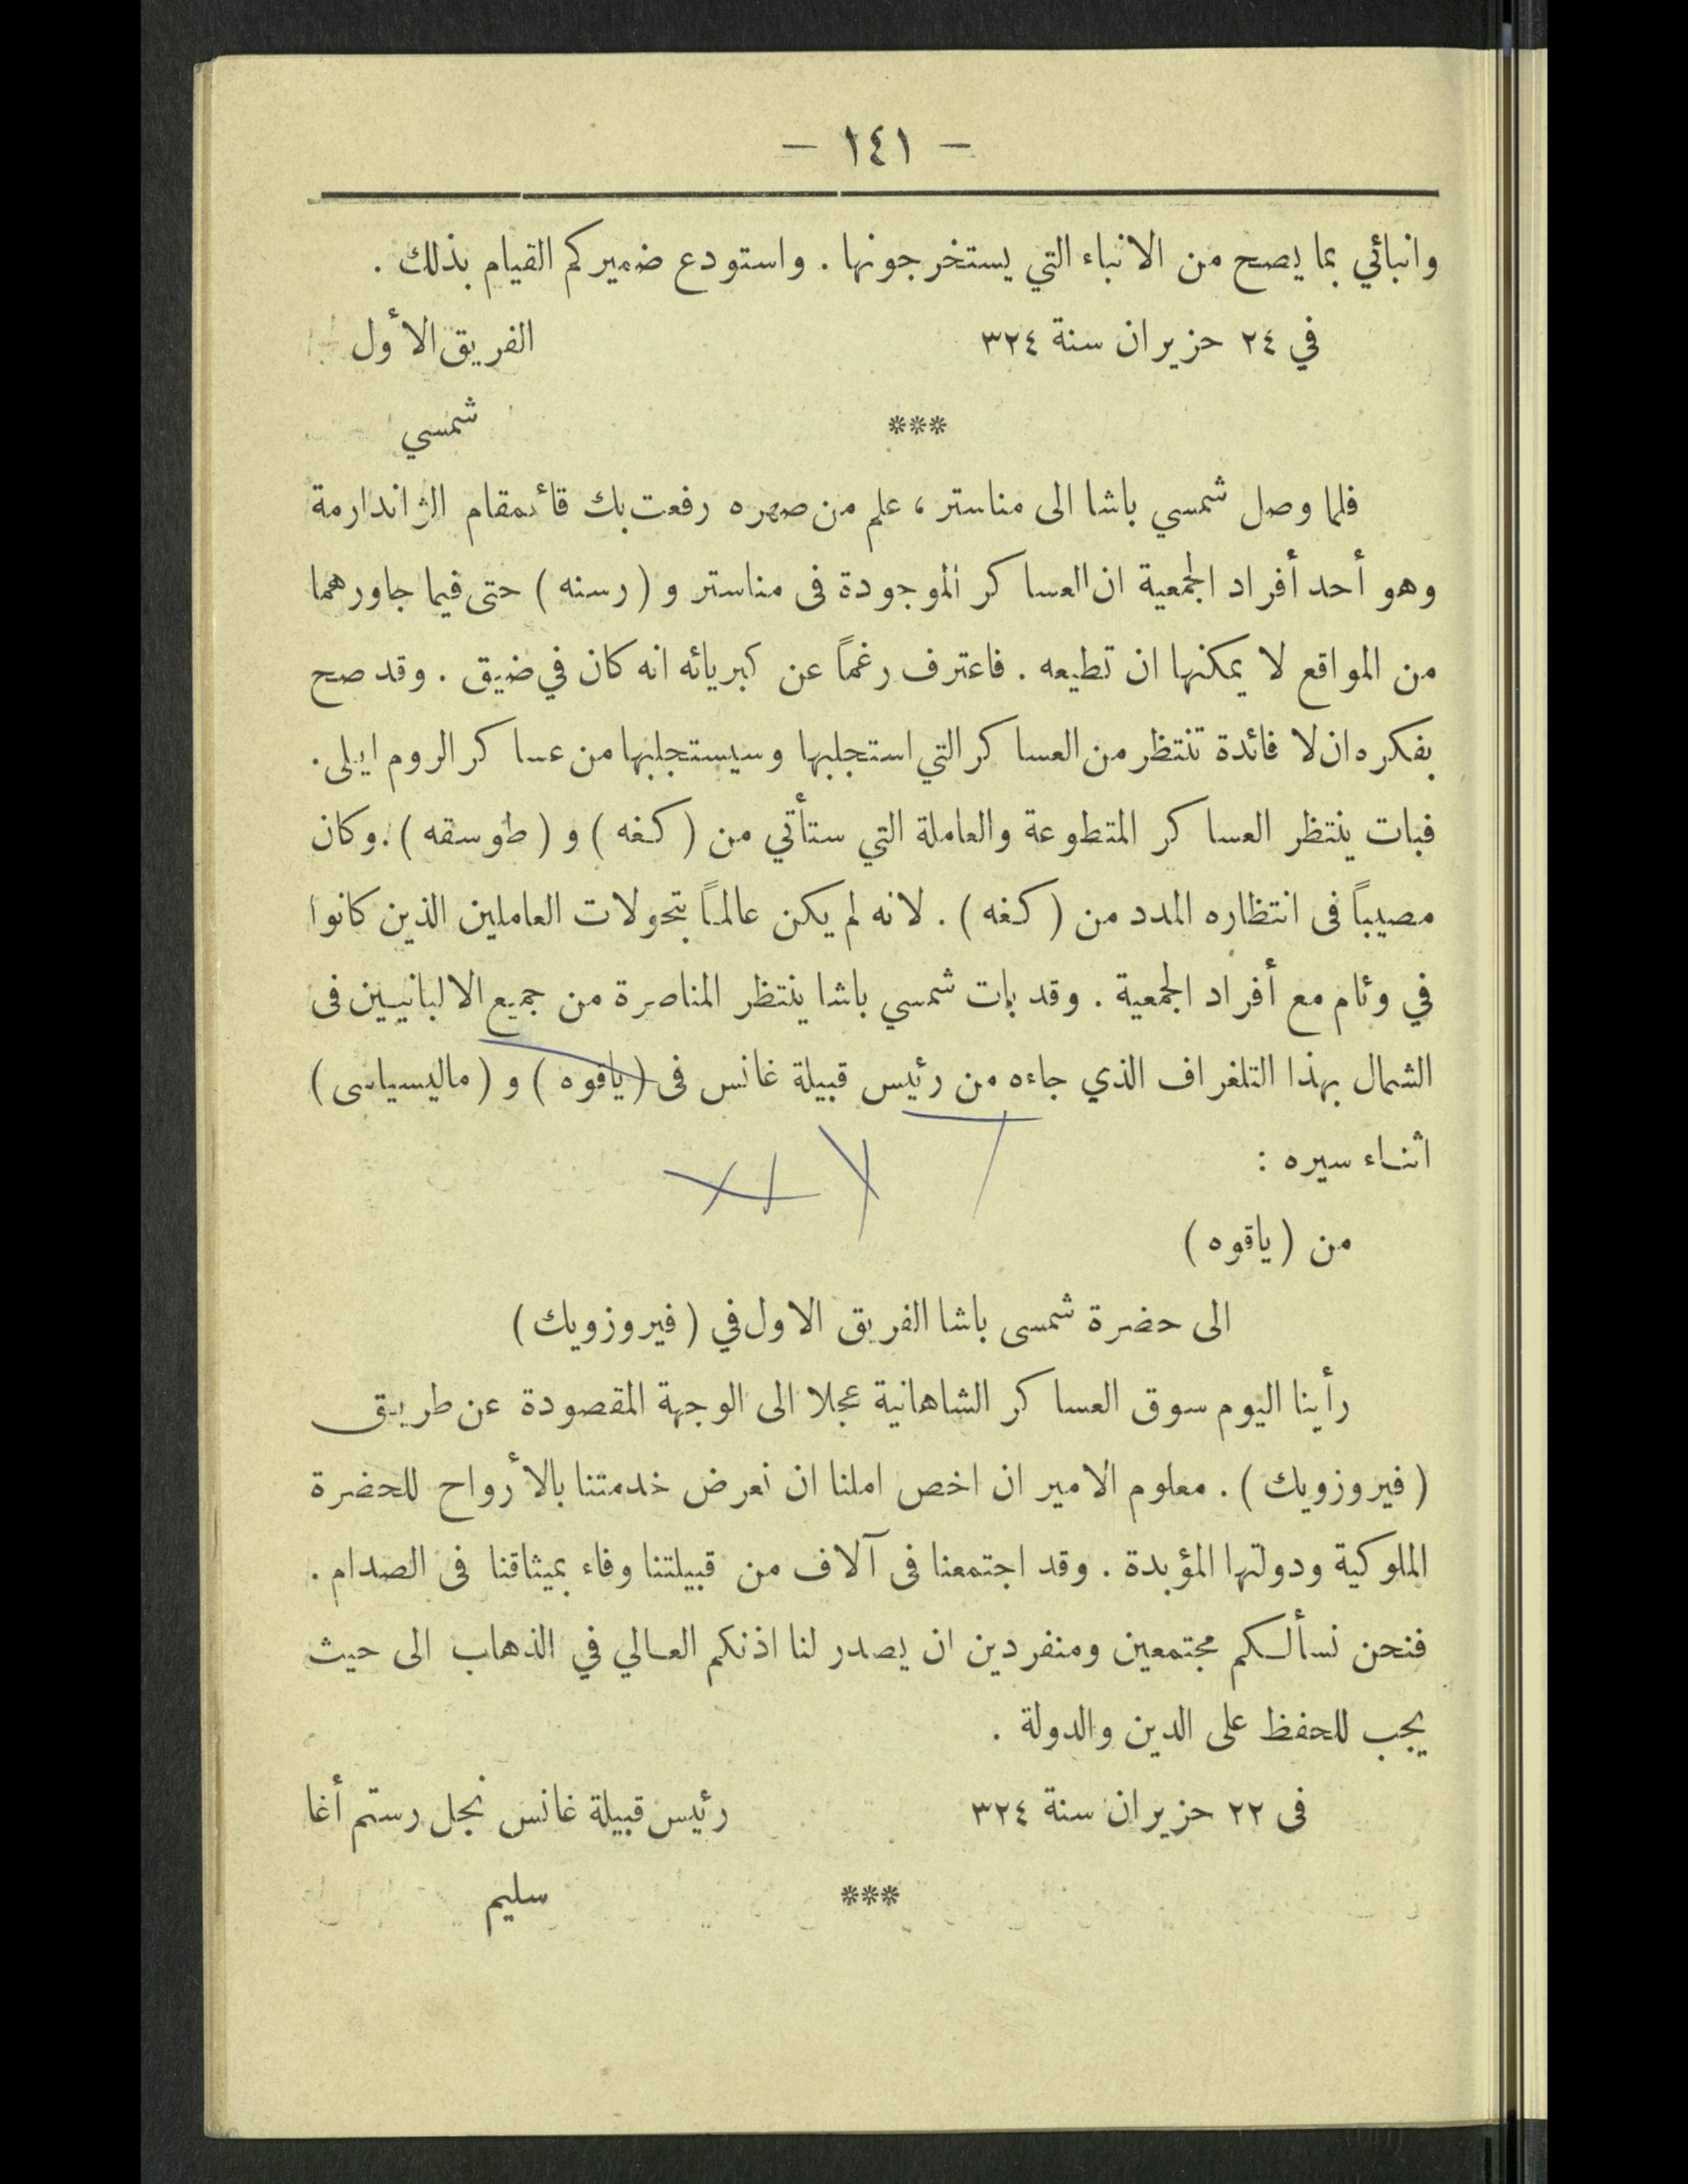 — ١٤١ —
وانبائي بما يصح من الانباء التي يستخرجونها . واستودع ضميركم القيام بذلك .
في ٢٤ حزيران سنة ٣٢٤ الفريق الأول
*** شمسي
فلما وصل شمسي باشا الى مناستر ، علم من صهره رفعت بك قائمقام الژاندارمة
وهو أحد أفراد الجمعية ان العساكر الموجودة فى مناستر و ( رسنه ) حتى فيما جاورهما
من المواقع لا يمكنها ان تطيعه . فاعترف رغماً عن كبريائه انه كان في ضيق . وقد صح
بفكره ان لا فائدة تنتظر من العساكر التي استجلبها وسيستجلبها من عساكر الروم ايلى .
فبات ينتظر العساكر المتطوعة والعاملة التي ستأتي من ( كغه ) و ( طوسقه ) . وكان
مصيباً فى انتظاره المدد من ( كغه ) . لانه لم يكن عالماً بتحولات العاملين الذين كانوا
في وئام مع أفراد الجمعية . وقد بات شمسي باشا ينتظر المناصرة من جميع الالبانيين فى
الشمال بهذا التلغراف الذي جاءه من رئيس قبيلة غانس فى ( ياقوه ) و ( ماليسياسى )
اثناء سيره :
من ( ياقوه )
الى حضرة شمسى باشا الفريق الاول في ( فيروزويك )
رأينا اليوم سوق العساكر الشاهانية عجلا الى الوجهة المقصودة عن طريق
( فيروزويك ) . معلوم الامير ان اخص املنا ان نعرض خدمتنا بالأرواح للحضرة
الملوكية ودولتها المؤبدة . وقد اجتمعنا فى آلاف من قبيلتنا وفاء بميثاقنا فى الصدام .
فنحن نسألكم مجتمعين ومنفردين ان يصدر لنا اذنكم العالي في الذهاب الى حيث
يجب للحفظ على الدين والدولة .
فى ٢٢ حزيران سنة ٣٢٤ رئيس قبيلة غانس نجل رستم أغا
*** سليم